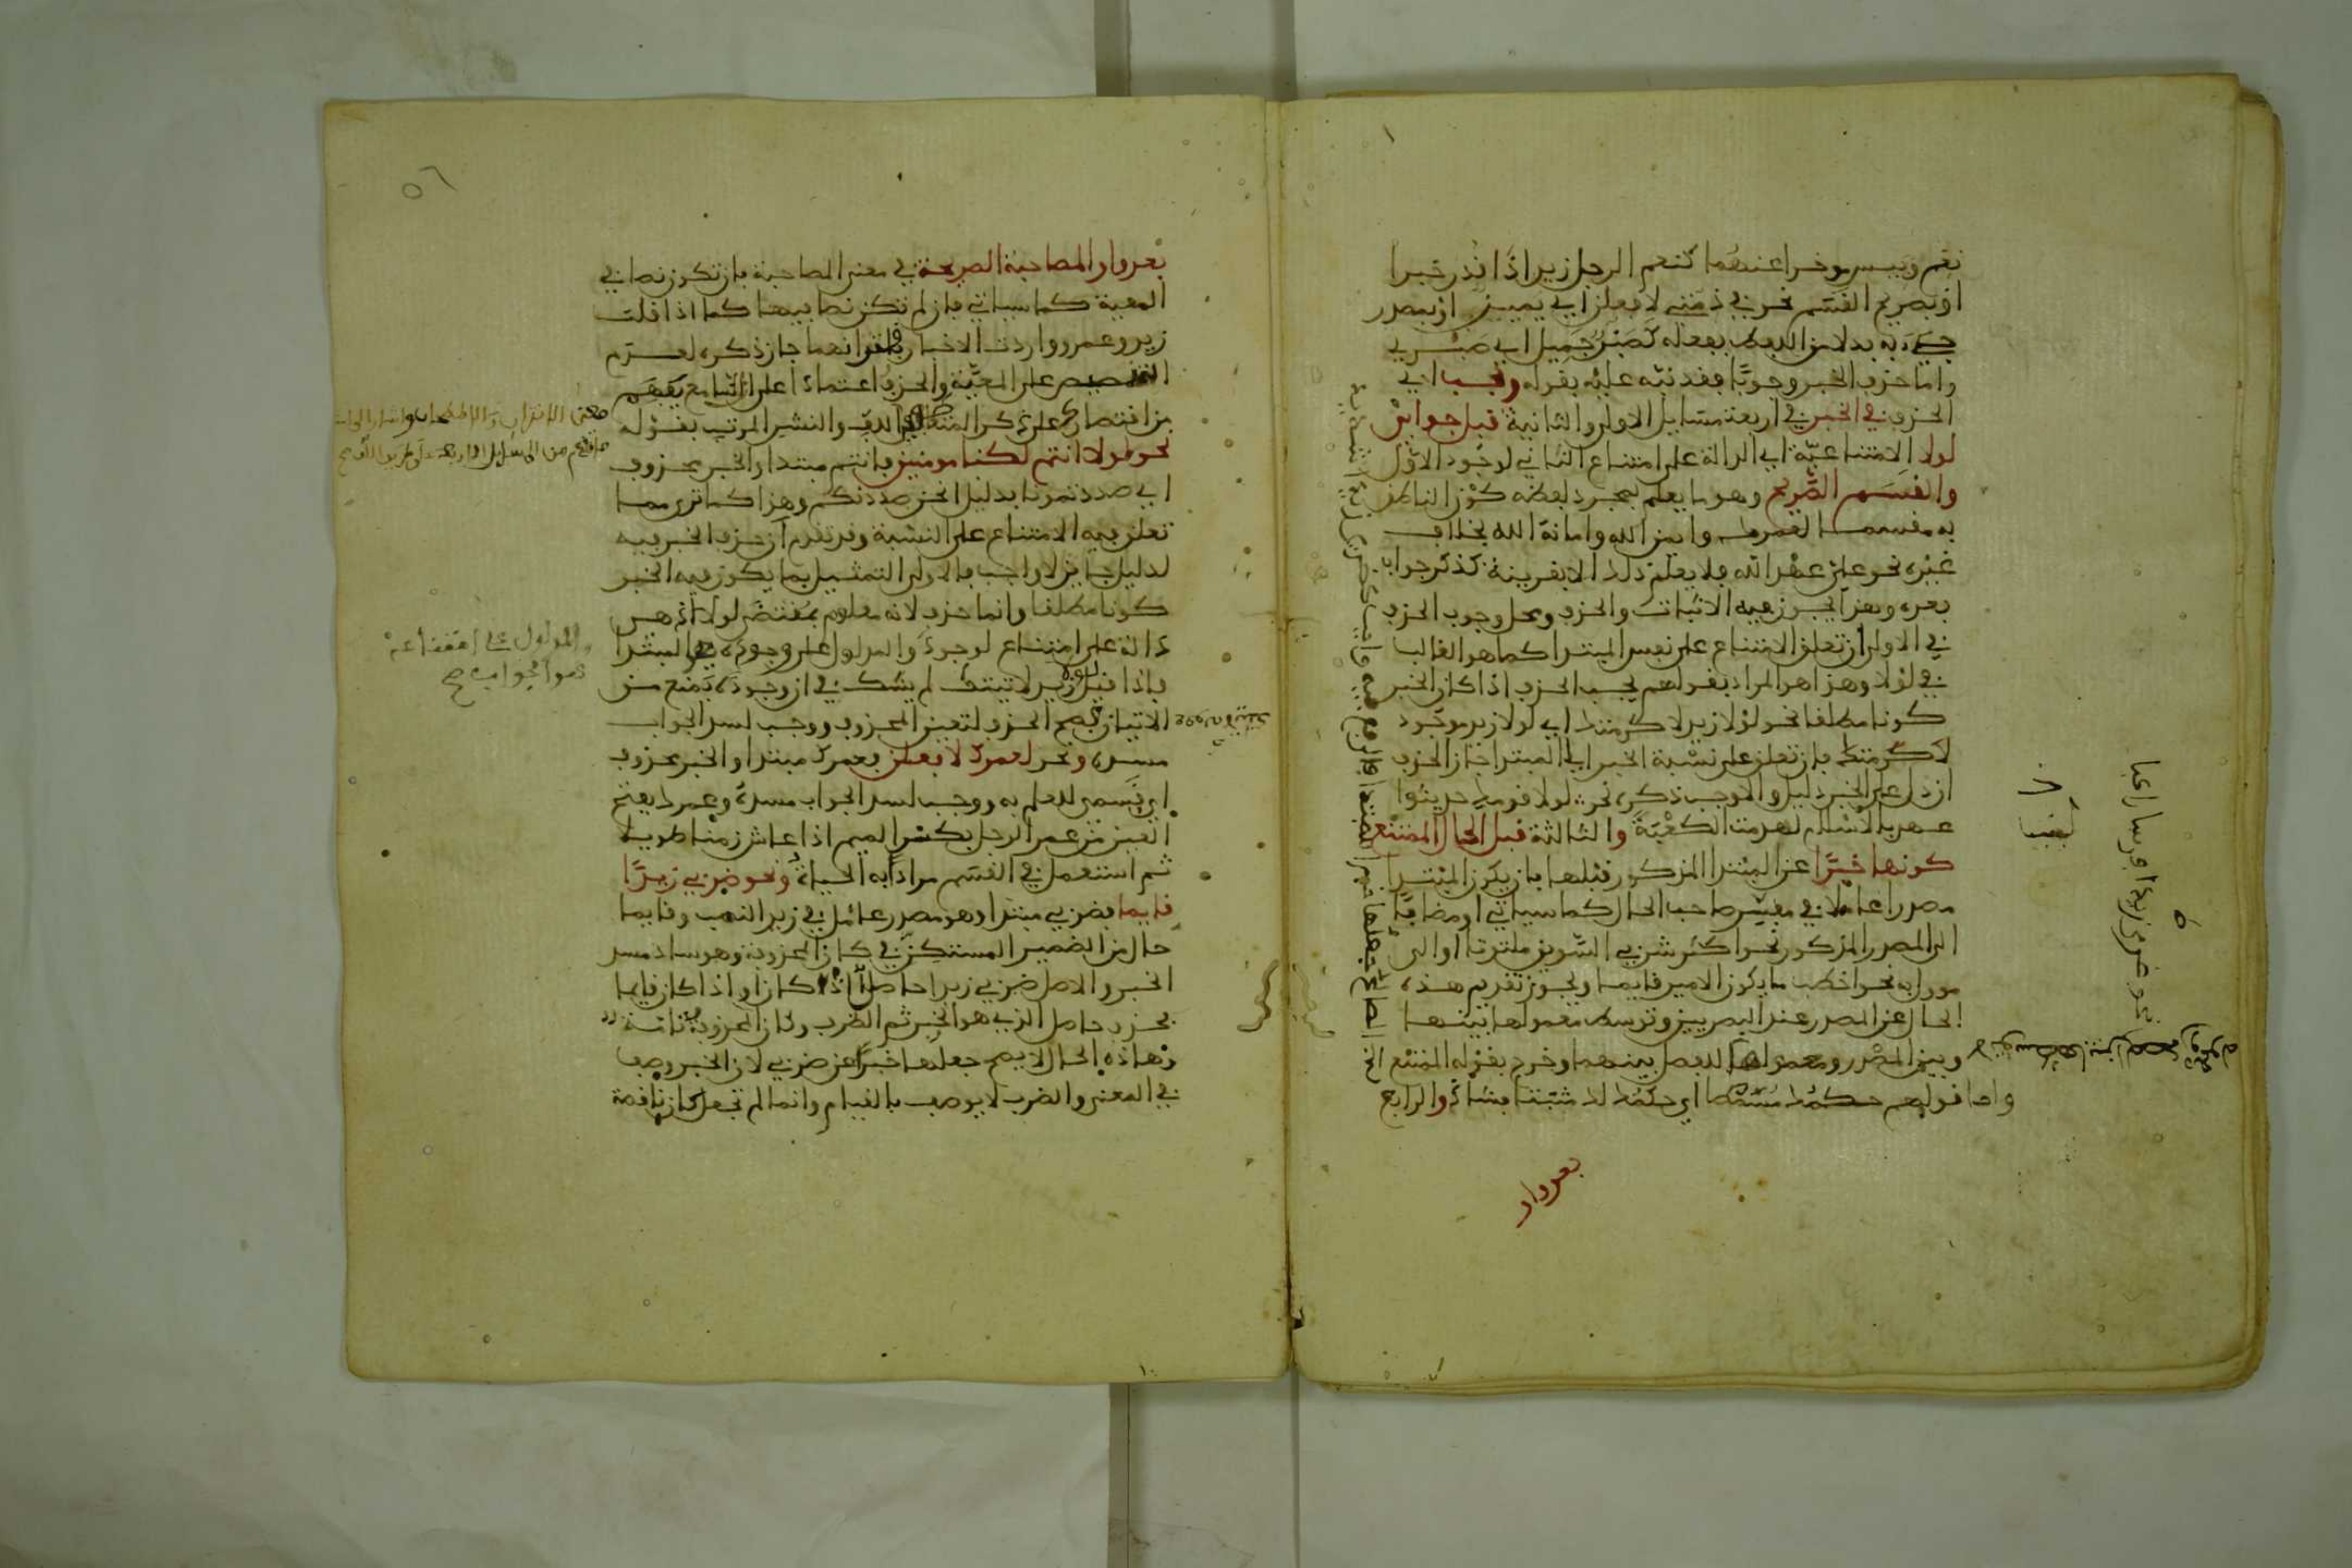 نعم وبيس موخرا عنهما كنعم الرجل زيد اذا قدر خبرا
او بصريح القسم نحو في ذمتي لافعلن اي يمين او بمصدر
جيء به بدلا من اللفظ بفعله كصبر جميل اي صبري
واما حذف الخبر وجوبا فقد نبه عليه بقوله ويجب اي
الحذف في الخبر في اربعة مسايل الاولى والثانية قبل جوابي
لولا الامتناعية اي الدالة على امتناع الثاني لوجود الاول
والقسم الصريح وهو ما يعلم بمجرد لفظه كون الناطق
به مقسما كلعمرك وايمن الله وامانة الله بخلاف
غيره نحو علي عهد الله فلا يعلم ذلك الا بقرينة كذكر جواب
بعده وهذا يجوز فيه الاثبات والحذف ومحل وجوب الحذف
في الاولى ان تعلق الامتناع على نفس المبتدا كما هو الغالب
في لولا وهذا هو المراد بقولهم يجب الحذف اذا كان الخبر
كونا مطلقا نحو لولا زيد لاكرمتك اي لولا زيد موجود
لاكرمتك فان تعلق على نسبة الخبر الى المبتدا جاز الحذف
ان دل على الخبر دليل والا وجب ذكره نحو لولا قومك حديثوا
عهد بالاسلام لهدمت الكعبة والثالثة قبل الحال الممتنع
كونها خبرا عن المبتدا المذكور قبلها بان يكون المبتدا
مصدرا عاملا في مفسر صاحب الحال كما سياتي او مضافا
الى المصدر المذكور نحو اكثر شربي السويق ملتوتا او الى
موول به نحو اخطب ما يكون الامير قايما ويجوز تقديم هذه
الحال عن المصدر عند البصريين وتوسط معمولها بينها
وبين المصدر ومعمولها للفصل بينهما وخرج بقوله الممتنع الخ
واما قولهم حكمك مسمطا اي حكمك لك مثبتا فشاذ والرابع
بعد واو
٥٦
بعد واو المصاحبة الصريحة في معنى المصاحبة بان تكون نصا في
المعية كما سياتي فان لم تكن نصا فيها كما اذا قلت
زيد وعمرو واردت الاخبار باقترانهما جاز ذكره لعدم
التنصيص على المعية والحذف اعتمادا على ان السامع يفهم
من اقتصارك على ذكر المتعاطفين اللف والنشر المرتب بقوله
نحو لولا انتم لكنا مومنين فانتم مبتدا والخبر محذوف
اي صددتمونا بدليل انحن صددنكم وهذا كما ترى مما
تعلق فيه الامتناع على النسبة وقد تقدم ان حذف الخبر فيه
لدليل جايز لا واجب فالاولى التمثيل بما يكون فيه الخبر
كونا مطلقا وانما حذف لانه معلوم بمقتضى لولا اذ هي
دالة على امتناع لوجود والمدلول على وجوده هو المبتدا
فاذا قيل لولا زيد لاتيتك لم يشك في ان وجوده يمنع من
الاتيان فصح الحذف لتعين المحذوف ووجب لسد الجواب
مسده ونحو لعمرك لافعلن فعمرك مبتدا والخبر محذوف
اي قسمي للعلم به ووجب لسد الجواب مسده وعمرك بفتح
العين من عمر الرجل بكسر الميم اذا عاش زمنا طويلا
ثم استعمل في القسم مرادا به الحياة ونحو ضربي زيدا
قايما فضربي مبتدا وهو مصدر عامل في زيد النصب وقايما
حال من الضمير المستكن في كان المحذوفة وهو ساد مسد
الخبر والاصل ضربي زيدا حاصل اذ كان او اذا كان قايما
فحذف حاصل الذي هو الخبر ثم الظرف وكان المحذوفة تامة
وهاذه الحال لا يصح جعلها خبرا عن ضربي لان الخبر وصف
في المعنى والضرب لا يوصف بالقيام وانما لم تجعل كان ناقصة
معنى الاقتران والاصطحاب واشار الى امثلة
ما تقدم من المسايل الاربعة على طريق اللف صح
والمدلول على امتناعه
هو الجواب صح